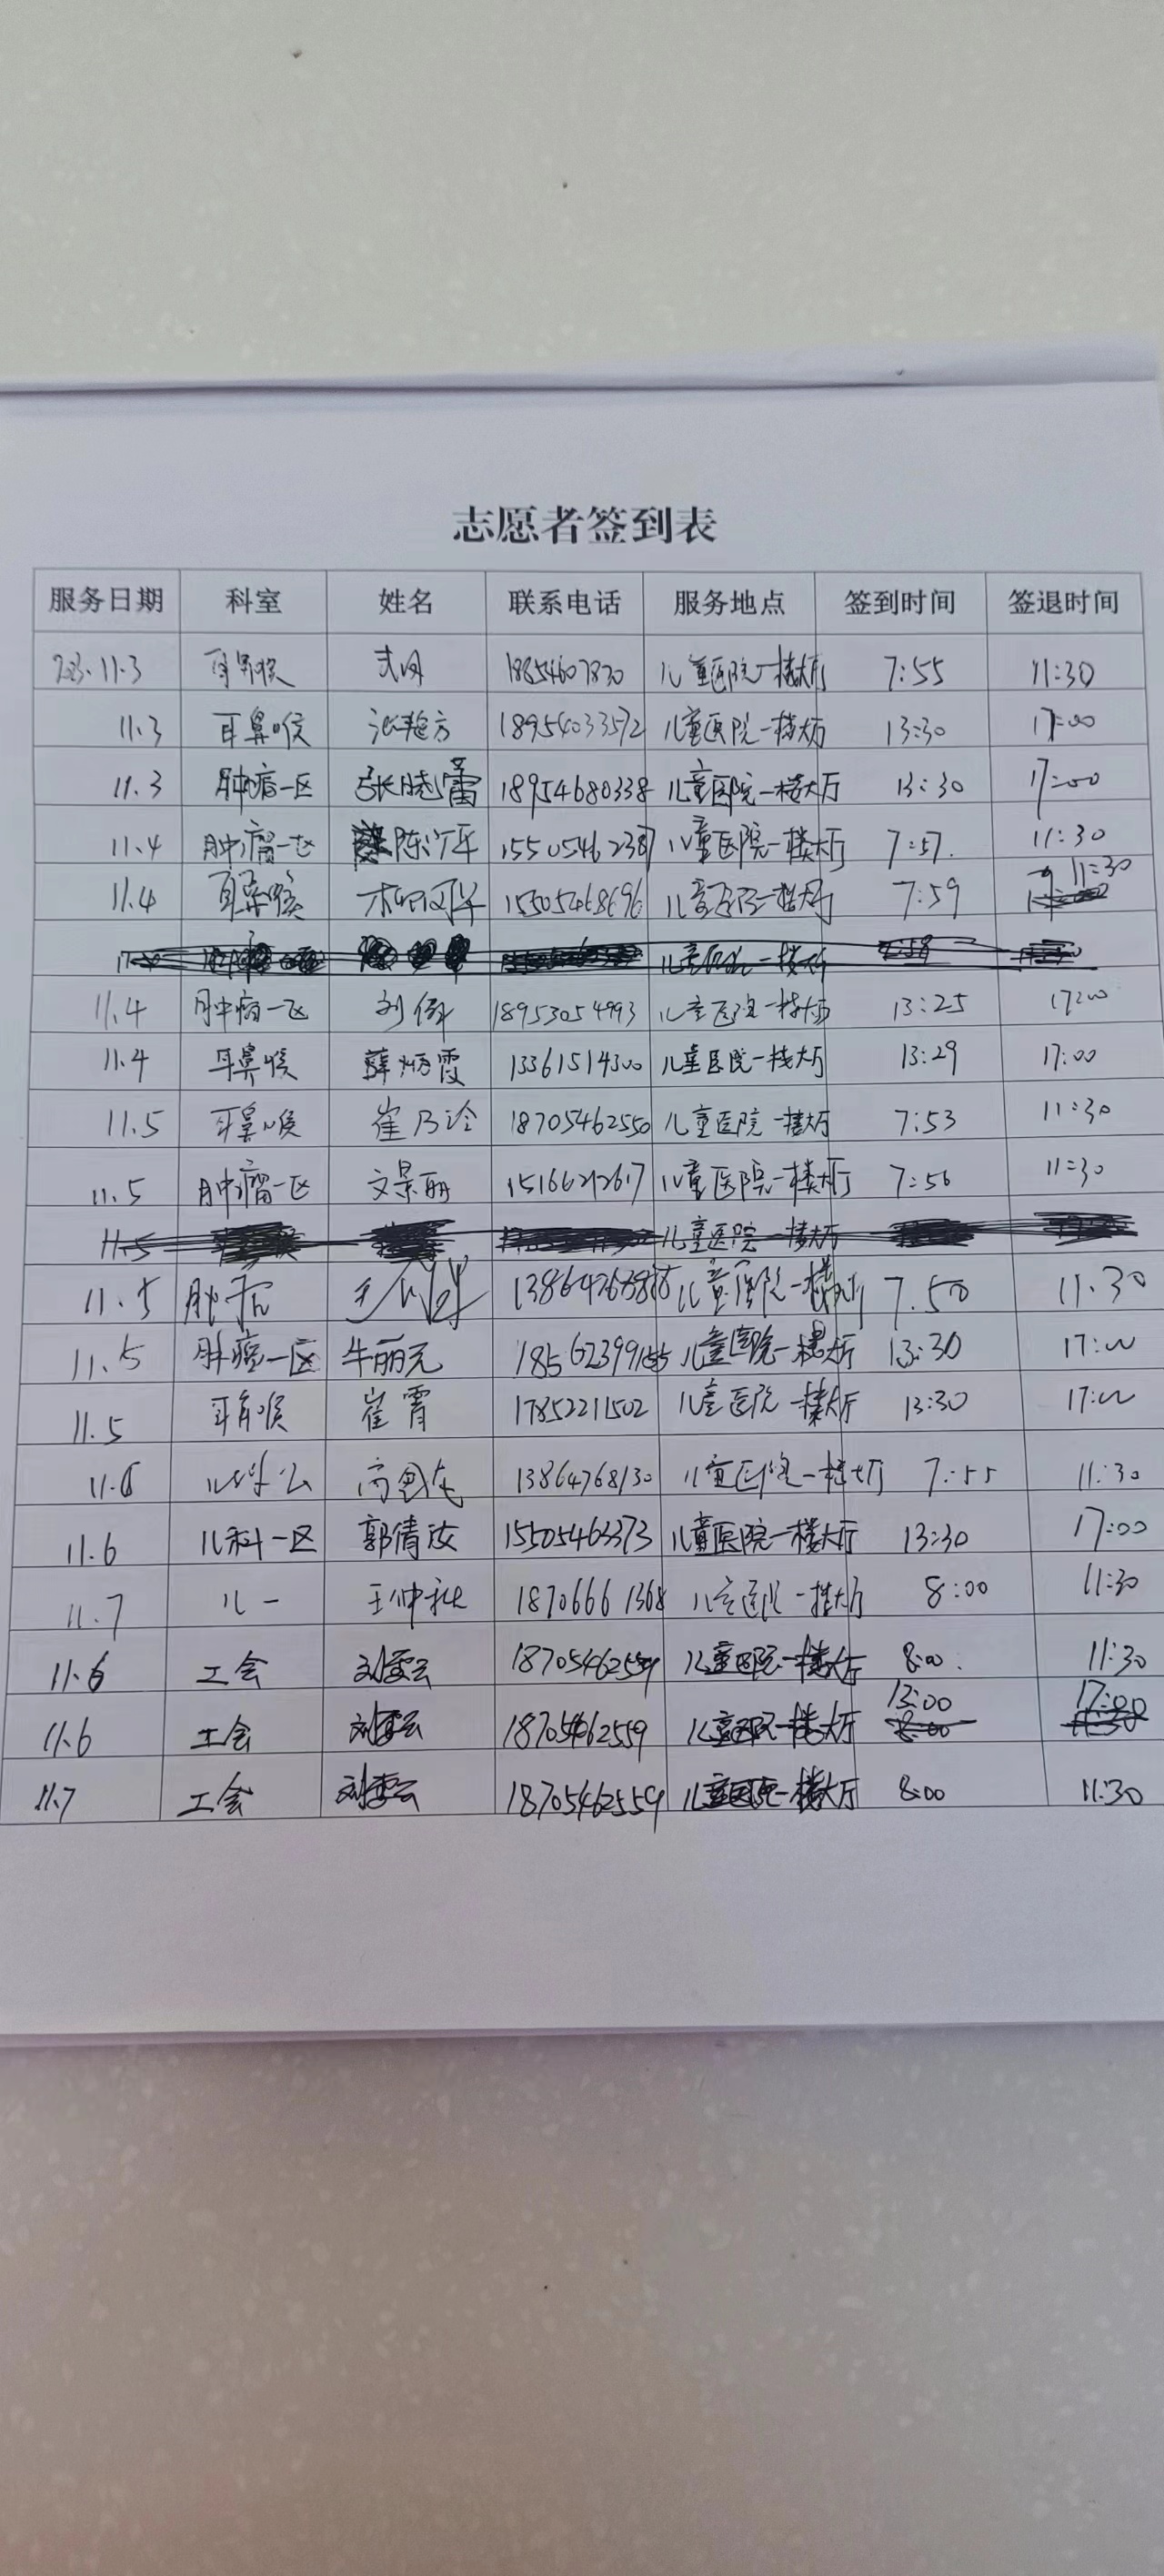 志愿者签到表
服务日期 科室 姓名 联系电话 服务地点 签到时间 签退时间
11.3 耳鼻喉 18854607830 儿童医院一楼大厅 7:55 11:30
11.3 耳鼻喉 18954033572 儿童医院一楼大厅 13:30 17:00
11.3 肿瘤一区 张晓蕾 18954680338 儿童医院一楼大厅 13:30 17:00
11.4 肿瘤一区 陈 15505462387 儿童医院一楼大厅 7:57. 11:30
11.4 耳鼻喉 15505468696 儿童医院一楼大厅 7:59 11:30
儿童医院一楼大厅
11.4 肿瘤一区 刘 18953054993 儿童医院一楼大厅 13:25 17:00
11.4 耳鼻喉 薛炳霞 13361514300 儿童医院一楼大厅 13:29 17:00
11.5 耳鼻喉 崔乃 18705462550 儿童医院一楼大厅 7:53 11:30
11.5 肿瘤一区 文景丽 儿童医院一楼大厅 7:56 11:30
11.5 儿童医院一楼大厅
11.5 肿瘤 儿童医院一楼大厅 7.50 11:30
11.5 肿瘤一区 牛丽元 儿童医院一楼大厅 13:30 17:00
11.5 耳鼻喉 崔霄 17852211502 儿童医院一楼大厅 13:30 17:00
11.6 13864768130 儿童医院一楼大厅 7:55 11:30
11.6 儿科一区 郭倩汝 15505463373 儿童医院一楼大厅 13:30 17:00
11.7 儿一 王 18706661368 儿童医院一楼大厅 8:00 11:30
11.6 工会 刘 18705462559 儿童医院一楼大厅 8:00 11:30
11.6 工会 刘 18705462559 儿童医院一楼大厅 13:00 17:00
11.7 工会 刘 18705462559 儿童医院一楼大厅 8:00 11:30